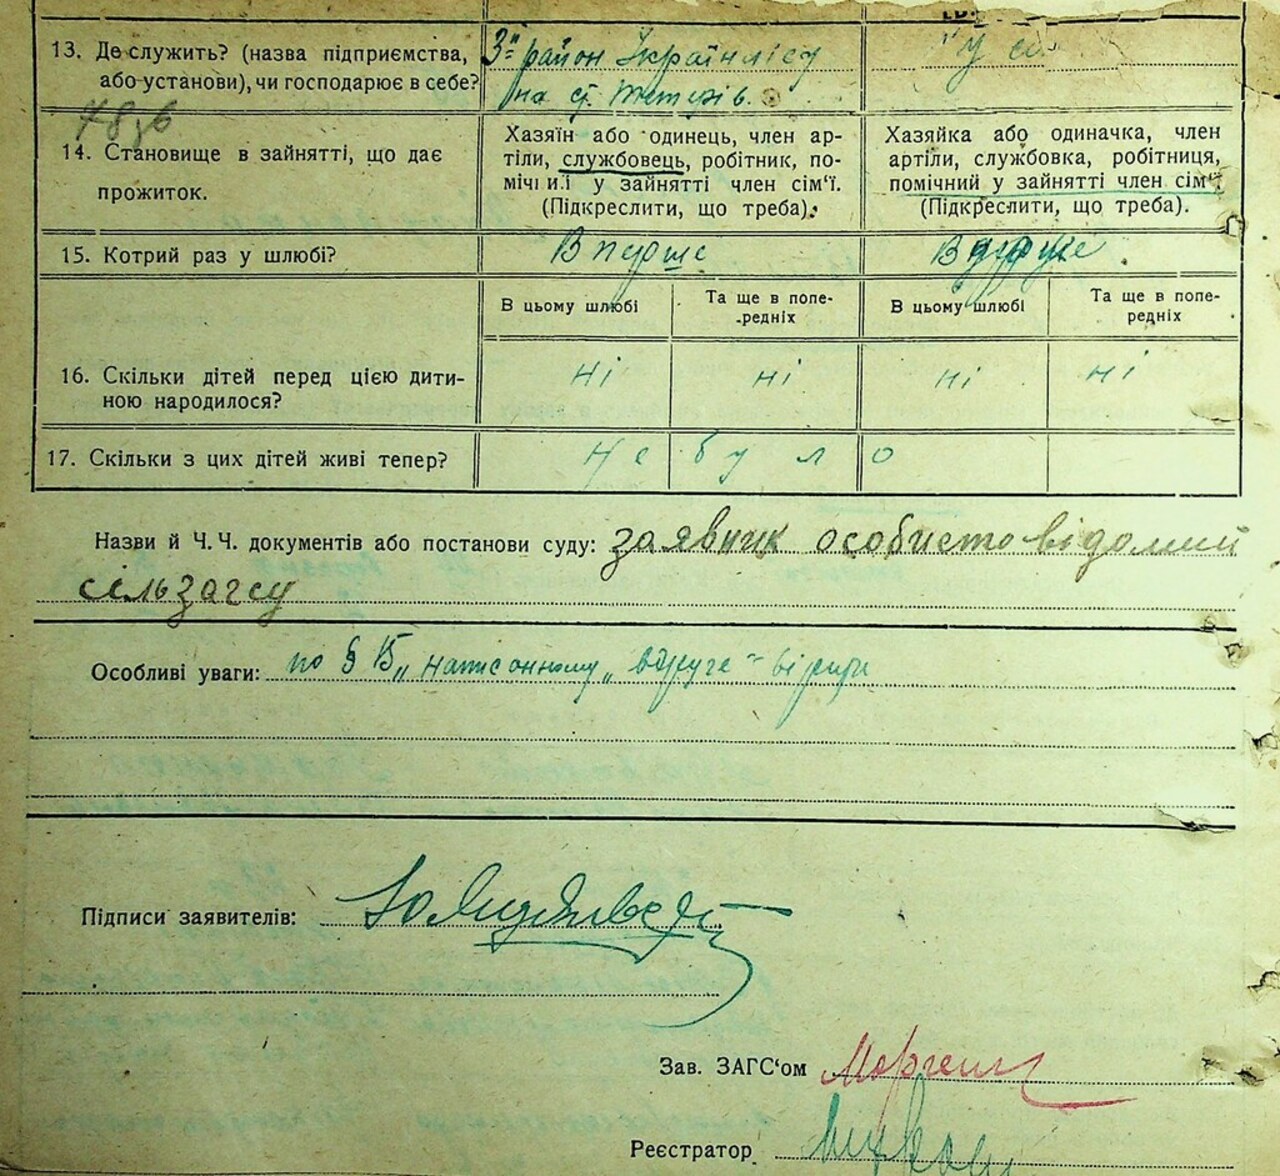 13. Де служить? (назва підприємства, 3й район Українлісу
або установи), чи господарює в себе? на ст. Тетерів.
14. Становище в зайнятті, що дає
прожиток.
Хазяїн або одинець, член ар-
тілі, службовець, робітник, по-
мічний у зайнятті член сім‘ї.
(Підкреслити, що треба).
Хазяйка або одиначка, член
артілі, службовка, робітниця,
помічний у зайнятті член сім‘ї.
(Підкреслити, що треба).
15. Котрий раз у шлюбі? Вперше Вдруге
В цьому шлюбі
Та ще в попе-
редніх
В цьому шлюбі
Та ще в попе-
редніх
16. Скільки дітей перед цією дити- ні ні ні ні
ною народилося?
17. Скільки з цих дітей живі тепер? Не було
Назви й Ч. Ч. документів або постанови суду: заявник особисто відомий
сільзагсу
Особливі уваги: по § 15 „ написанному „ вдруге “ вірити
Підписи заявителів:
Зав. ЗАГС‘ом
Реєстратор